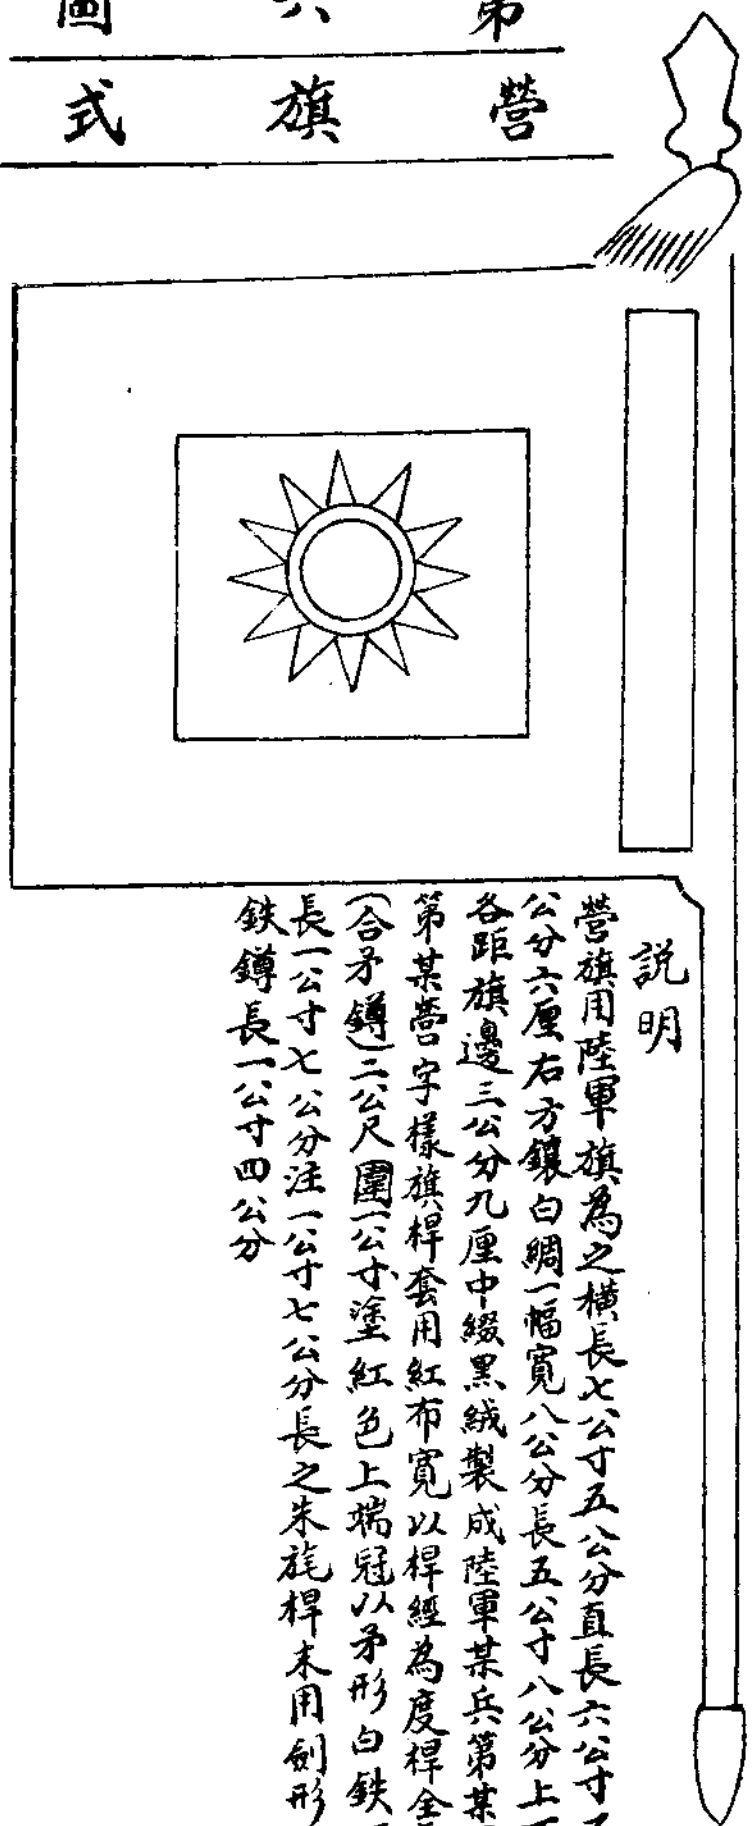 第六圖
營旗式
說明
營旗用陸軍旗為之橫長七公寸五公分直長六公寸
公分六厘右方鑲白綢一幅寬八公分長五公寸八公分上
各距旗邊三公分九厘中綴黑絨製成陸軍某兵第某
第某營字樣旗桿套用紅布寬以桿經為度桿全
(合矛鐏)二公尺圍一公寸塗紅色上端冠以矛形白鉄
長一公寸七公分注一公寸七公分長之朱旄桿末用劍形
鉄鐏長一公寸四公分